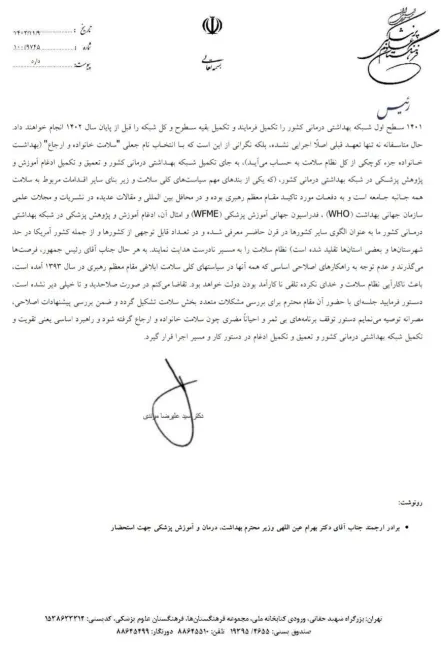 تاریخ : ۱۴۰۲/۱۱/۹
شماره : ۱۰۰/۹۷۴۵
پیوست: دارد
رئیس
۱۴۰۱ سطح اول شبکه بهداشتی درمانی کشور را تکمیل فرمایند و تکمیل بقیه سطوح و کل شبکه را قبل از پایان سال ۱۴۰۲ انجام خواهند داد.
حال متاسفانه نه تنها تعهد قبلی اصلا اجرایی نشده، بلکه نگرانی از این است که با انتخاب نام جعلی "سلامت خانواده و ارجاع" (بهداشت
خانواده جزء کوچکی از کل نظام سلامت به حساب می‌آید)، به جای تکمیل شبکه بهداشتی درمانی کشور و تعمیق و تکمیل ادغام آموزش و
پژوهش پزشکی در شبکه بهداشتی درمانی کشور، (که یکی از بندهای مهم سیاست‌های کلی سلامت و زیر بنای سایر اقدامات مربوط به سلامت
همه جانبه جامعه است و به دفعات مورد تاکید مقام معظم رهبری بوده و در محافل بین المللی و مقالات عدیده در نشریات و مجلات علمی
سازمان جهانی بهداشت (WHO) ، فدراسیون جهانی آموزش پزشکی (WFME) و امثال آن، ادغام آموزش و پژوهش پزشکی در شبکه بهداشتی
درمانی کشور ما به عنوان الگوی سایر کشورها در قرن حاضر معرفی شده و در تعداد قابل توجهی از کشورها و از جمله کشور آمریکا در حد
شهرستان‌ها و بعضی استان‌ها تقلید شده است) نظام سلامت را به مسیر نادرست هدایت نمایند. به هر حال جناب آقای رئیس جمهور، فرصت‌ها
می‌گذرند و عدم توجه به راهکارهای اصلاحی اساسی که همه آنها در سیاستهای کلی سلامت ابلاغی مقام معظم رهبری در سال ۱۳۹۳ آمده است،
باعث ناکارآیی نظام سلامت و خدای نکرده تلقی نا کارآمد بودن دولت خواهد بود. تقاضا می‌کنم در صورت صلاحدید و تا خیلی دیر نشده است،
دستور فرمایید جلسه‌ای با حضور آن مقام محترم برای بررسی مشکلات متعدد بخش سلامت تشکیل گردد و ضمن بررسی پیشنهادات اصلاحی،
مصرانه توصیه می‌نمایم دستور توقف برنامه‌های بی ثمر و احیاناً مضری چون سلامت خانواده و ارجاع گرفته شود و راهبرد اساسی یعنی تقویت و
تکمیل شبکه بهداشتی درمانی کشور و تعمیق و تکمیل ادغام در دستور کار و مسیر اجرا قرار گیرد.
دکتر سید علیرضا مرندی
رونوشت:
• برادر ارجمند جناب آقای دکتر بهرام عین اللهی وزیر محترم بهداشت، درمان و آموزش پزشکی جهت استحضار
تهران: بزرگراه شهید حقانی، ورودی کتابخانه ملی، مجموعه فرهنگستان‌ها، فرهنگستان علوم پزشکی، کدپستی: ۱۵۳۸۶۳۳۳۱۴
صندوق پستی: ۴۶۵۵/ ۱۹۳۹۵ تلفن: ۸۸۶۴۵۵۱۰ دورنگار: ۸۸۶۴۵۴۹۹